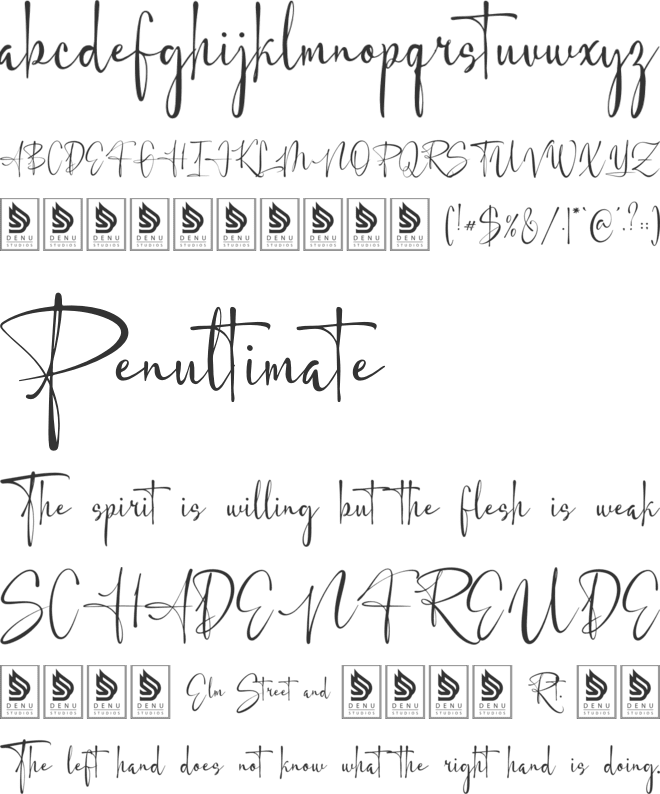 abcdefghijklmnopqrstuvwxyz
ABCDEFGHIJKLMNOPQRSTUVWXYZ
DENU STUDIOS DENU STUDIOS DENU STUDIOS DENU STUDIOS DENU STUDIOS DENU STUDIOS DENU STUDIOS DENU STUDIOS DENU STUDIOS DENU STUDIOS (!#$%&/.|*`@´.?:;)
Penultimate
The spirit is willing but the flesh is weak
SCHADENFREUDE
DENU STUDIOS DENU STUDIOS DENU STUDIOS DENU STUDIOS Elm Street and DENU STUDIOS DENU STUDIOS DENU STUDIOS DENU STUDIOS Rt. DENU STUDIOS DENU STUDIOS
The left hand does not know what the right hand is doing.